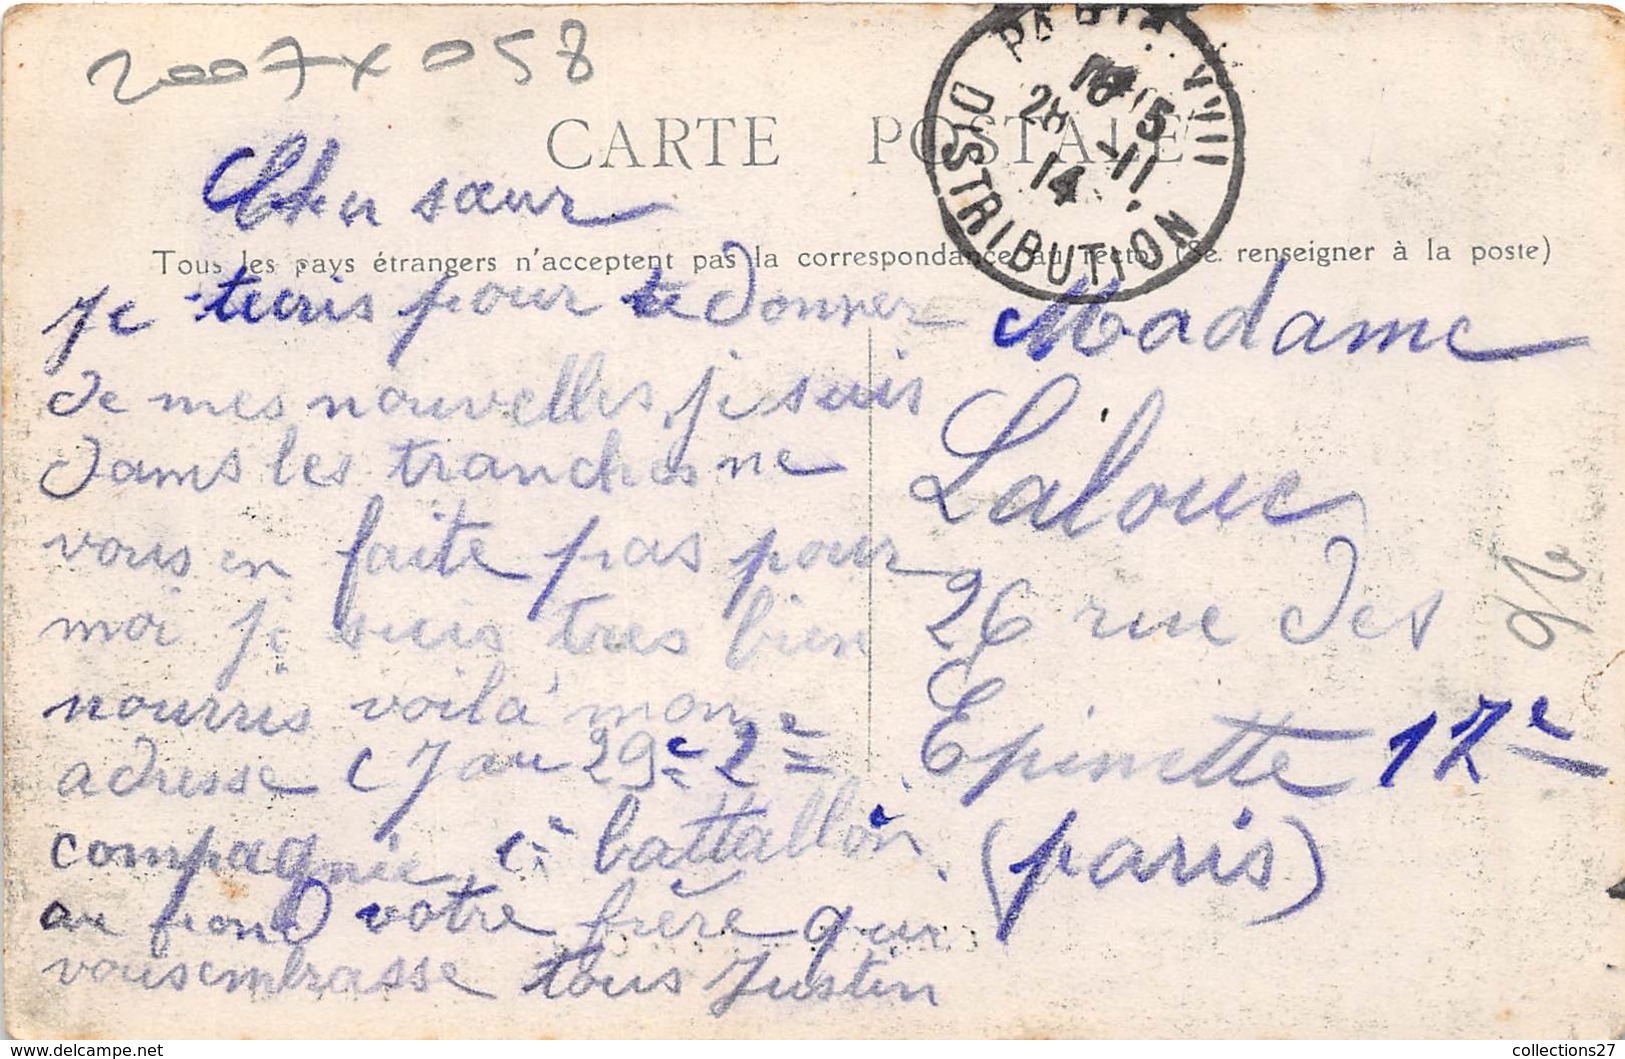 2007 x 058
CARTE POSTALE
PARIS XVII
DISTRIBUTION
28 11
14
Tous les pays étrangers n'acceptent pas la correspondance au recto (Se renseigner à la poste)
Cher sœur
Je pour te donner
de mes nouvelles, je suis
dams les tranches ne
vous en faite pas pour
moi je suis tres bien
nourris voilà mon
adresse au 29e 2e
compagnie battallon
au front votre frère qui
vousembrasse tous Justin
Madame
Laloue
26 rue des
Epinette 17e
(paris)
collections27